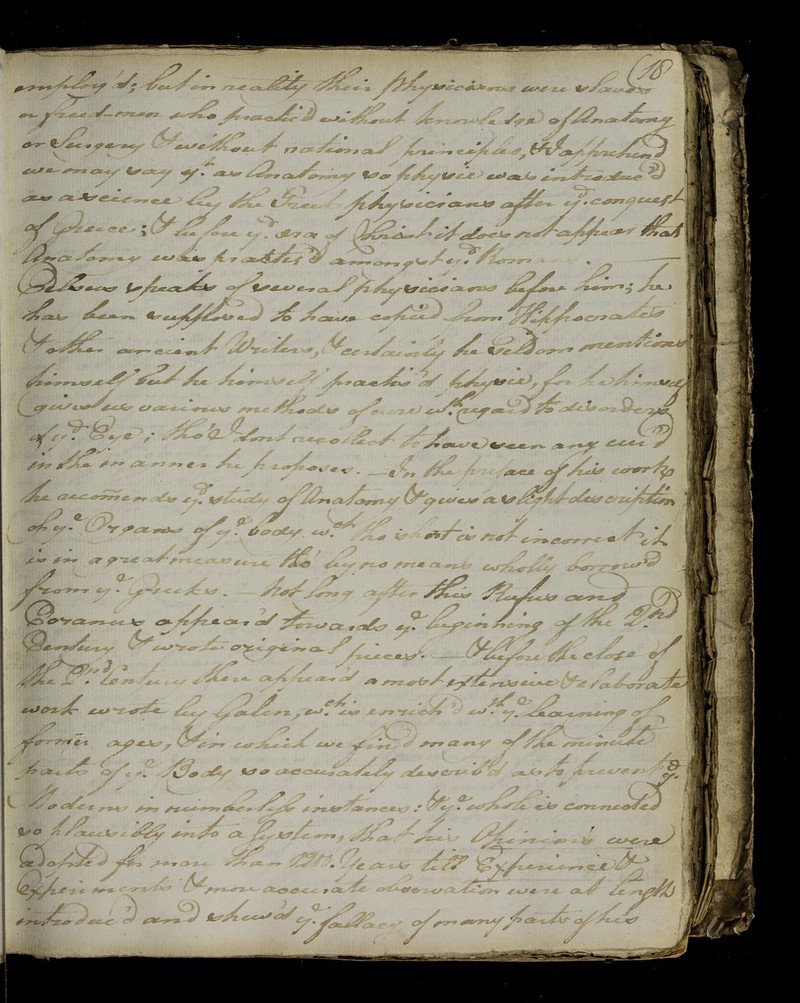 (18
employ'd; but in reality their Physicians were slaves
or freed-men who practic'd without knowledge of Anatomy
or Surgery & without rational principles, & I apprehend
we may say yt. as Anatomy so physic was introduc'd
as a science by the Greek physicians after ye. conquest
of Greece; & before ye. æra of Christ it does not appear that
Anatomy was practis'd amongst ye. Romans.
Celsus speaks of several physicians before him; he
has been supposed to have copied from Hippocrates
& other ancient Writers, & certainly he seldom mentions
himself but he himself practis'd physic, for he himself
gives us various methods of cure wth. regard to disorders
of ye. Eye; tho' I dont recollect to have seen any cur'd
in the manner he proposes. — In the preface of his works
he recom̄ends ye. study of Anatomy & gives a slight description
of ye. Organs of ye. body wch. tho' short is not incorrect it
is in a great measure tho' by no means wholly borrow'd
from ye. Greeks. — Not long after this Rufus and
Soranus appear'd towards ye. beginning of the 2nd
Century & wrote original pieces. — & before the close of
the 2nd. Century there appear'd a most extensive & elaborate
work wrote by Galen, wch. is enrich'd wth. ye. learning of
former ages, & in which we find many of the minute
parts of ye. Body so accurately describ'd as to prevent ye.
Moderns in numberless instances: & ye. whole is connected
so plausibly into a System, that his Opinions were
adopted for more than 1200. Years till Experience &
Experiments & more accurate observation were at length
introduc'd and shew'd ye. fallacy of many parts of his